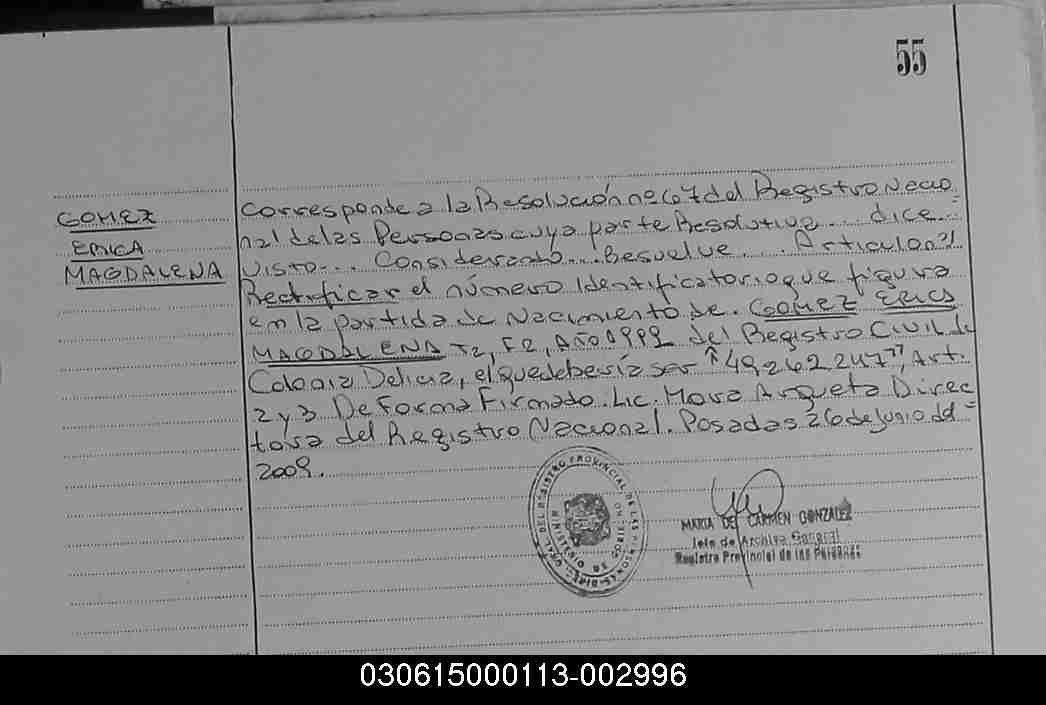 55
GOMEZ
ERICA
MAGDALENA
Corresponde a la Resolución nº 67 del Registro Nacio
nal de las Personas cuya parte Resolutiva... dice =
Visto... Considerando... Resuelve... Articulo nº 1
Rectificar el número Identificatorio que figura
en la partida de Nacimiento de. GOMEZ ERICA
MAGDALENA T2, F2, Año 1992 del Registro Civil de
Colonia Delicia, el que debería ser "49262247", Art.
2 y 3 De Forma Firmado. Lic. Mora Arqueta Direc
tora del Registro Nacional. Posadas 26 de Junio del =
2009.
MARIA DEL CARMEN GONZALEZ
Jefe de Archivo General
Registro Provincial de las Personas
030615000113-002996